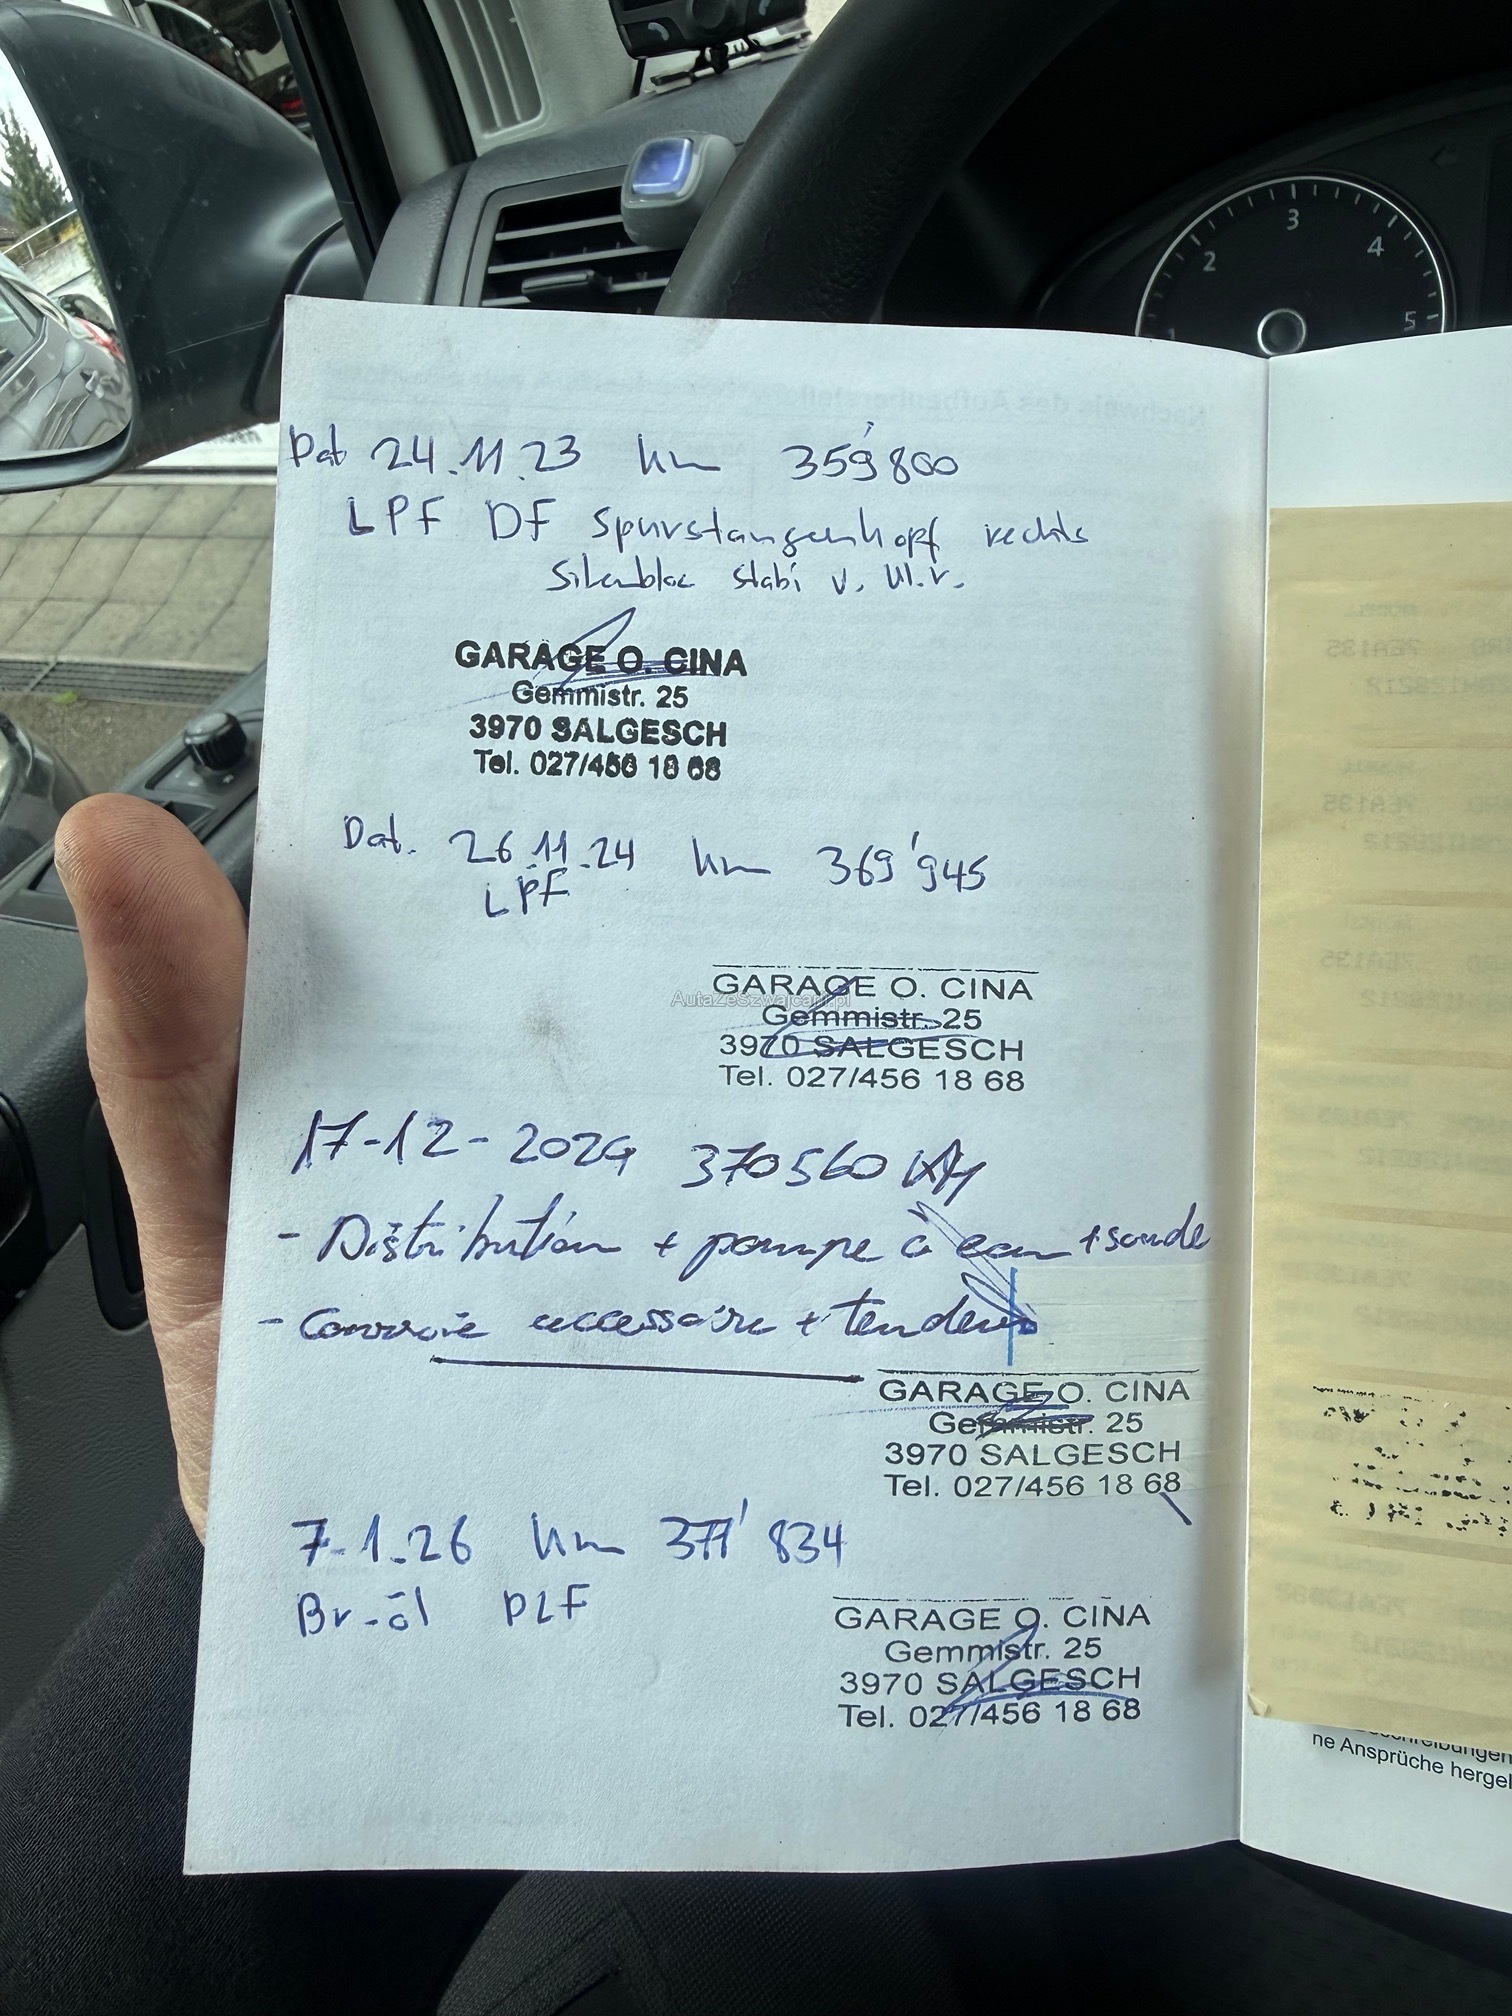 Dat 24.11.23 km 359'800
LPF DF Spurstangenkopf rechts
Silenbloc stabi v.
GARAGE O. CINA
Gemmistr. 25
3970 SALGESCH
Tel. 027/456 18 68
Dat. 26.11.24 km 369'945
LPF
GARAGE O. CINA
AutaZeSzwajcarii.pl
Gemmistr. 25
3970 SALGESCH
Tel. 027/456 18 68
17-12-2024 370560 KM
- Distribution + pompe à eau + sonde
- Courroie accessoire + tendeur
GARAGE O. CINA
Gemmistr. 25
3970 SALGESCH
Tel. 027/456 18 68
7-1-26 km 377'834
Br-öl PLF
GARAGE O. CINA
Gemmistr. 25
3970 SALGESCH
Tel. 027/456 18 68
ne Ansprüche hergel
1
2
3
4
5